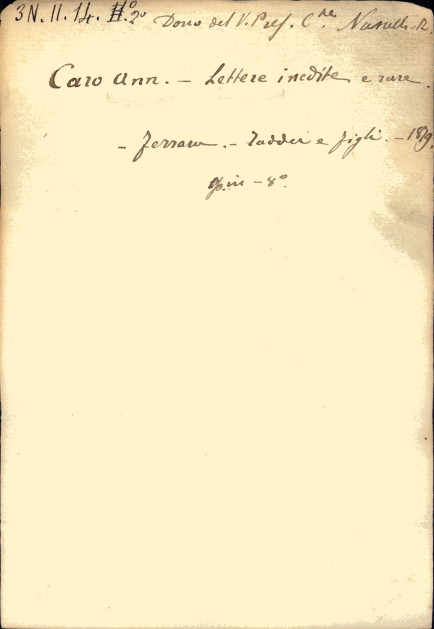 3N. II. 14. H.º 2º Dono del V. Pref. C.re
Caro Ann. - Lettere inedite e rare.
- Ferrara. - Taddei e figli. - 1879.
Op. in - 8º.